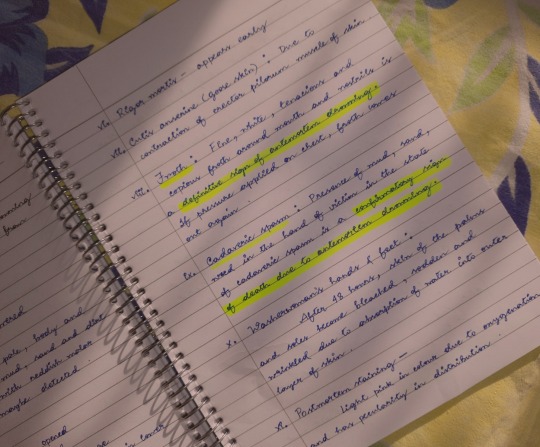 owning
from
ored
pale, body and
mud, sand and dirt
with reddish water
maybe detected.
opened
vi. Rigor mortis - appears early
vii. Cutis anserine (goose skin) : Due to
contraction of erector pilorum muscle of skin.
viii. Froth : Fine, white, tenacious and
copious froth around mouth and nostrils is
a definitive sign of antemortem drowning.
If pressure applied on chest, froth comes
out again.
ix. Cadaveric spasm : Presence of mud, sand,
weed in the hand of victim in the state
of cadaveric spasm is a confirmatory sign
of death due to antemortem drowning.
x. Washerwoman's hands & feet :
After 48 hours, skin of the palms
and soles become bleached, sodden and
wrinkled due to absorption of water into outer
layer of skin.
xi. Postmortem staining -
Light pink in colour due to oxygenation
and has peculiarity in distribution.